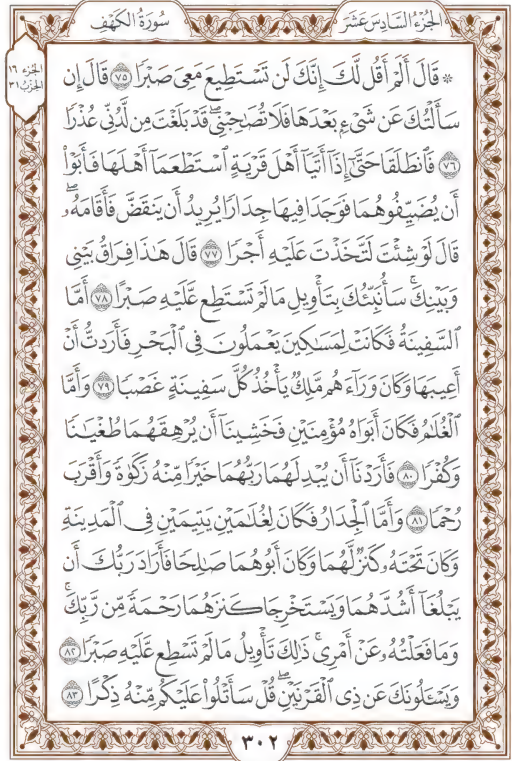 الجُزْءُ السَّادِسَ عَشَرَ
سُورَةُ الكَهْفِ
الجزء ١٦
الحزب ٣١
۞ قَالَ أَلَمْ أَقُل لَّكَ إِنَّكَ لَن تَسْتَطِيعَ مَعِىَ صَبْرًا ٧٥ قَالَ إِن
سَأَلْتُكَ عَن شَىْءٍۭ بَعْدَهَا فَلَا تُصَٰحِبْنِى ۖ قَدْ بَلَغْتَ مِن لَّدُنِّى عُذْرًا
٧٦ فَٱنطَلَقَا حَتَّىٰٓ إِذَآ أَتَيَآ أَهْلَ قَرْيَةٍ ٱسْتَطْعَمَآ أَهْلَهَا فَأَبَوْا۟
أَن يُضَيِّفُوهُمَا فَوَجَدَا فِيهَا جِدَارًا يُرِيدُ أَن يَنقَضَّ فَأَقَامَهُۥ ۖ
قَالَ لَوْ شِئْتَ لَتَّخَذْتَ عَلَيْهِ أَجْرًا ٧٧ قَالَ هَٰذَا فِرَاقُ بَيْنِى
وَبَيْنِكَ ۚ سَأُنَبِّئُكَ بِتَأْوِيلِ مَا لَمْ تَسْتَطِع عَّلَيْهِ صَبْرًا ٧٨ أَمَّا
ٱلسَّفِينَةُ فَكَانَتْ لِمَسَٰكِينَ يَعْمَلُونَ فِى ٱلْبَحْرِ فَأَرَدتُّ أَنْ
أَعِيبَهَا وَكَانَ وَرَآءَهُم مَّلِكٌ يَأْخُذُ كُلَّ سَفِينَةٍ غَصْبًا ٧٩ وَأَمَّا
ٱلْغُلَٰمُ فَكَانَ أَبَوَاهُ مُؤْمِنَيْنِ فَخَشِينَآ أَن يُرْهِقَهُمَا طُغْيَٰنًا
وَكُفْرًا ٨٠ فَأَرَدْنَآ أَن يُبْدِلَهُمَا رَبُّهُمَا خَيْرًا مِّنْهُ زَكَوٰةً وَأَقْرَبَ
رُحْمًا ٨١ وَأَمَّا ٱلْجِدَارُ فَكَانَ لِغُلَٰمَيْنِ يَتِيمَيْنِ فِى ٱلْمَدِينَةِ
وَكَانَ تَحْتَهُۥ كَنزٌ لَّهُمَا وَكَانَ أَبُوهُمَا صَٰلِحًا فَأَرَادَ رَبُّكَ أَن
يَبْلُغَآ أَشُدَّهُمَا وَيَسْتَخْرِجَا كَنزَهُمَا رَحْمَةً مِّن رَّبِّكَ ۚ
وَمَا فَعَلْتُهُۥ عَنْ أَمْرِى ۚ ذَٰلِكَ تَأْوِيلُ مَا لَمْ تَسْطِع عَّلَيْهِ صَبْرًا ٨٢
وَيَسْـَٔلُونَكَ عَن ذِى ٱلْقَرْنَيْنِ ۖ قُلْ سَأَتْلُوا۟ عَلَيْكُم مِّنْهُ ذِكْرًا ٨٣
٣٠٢